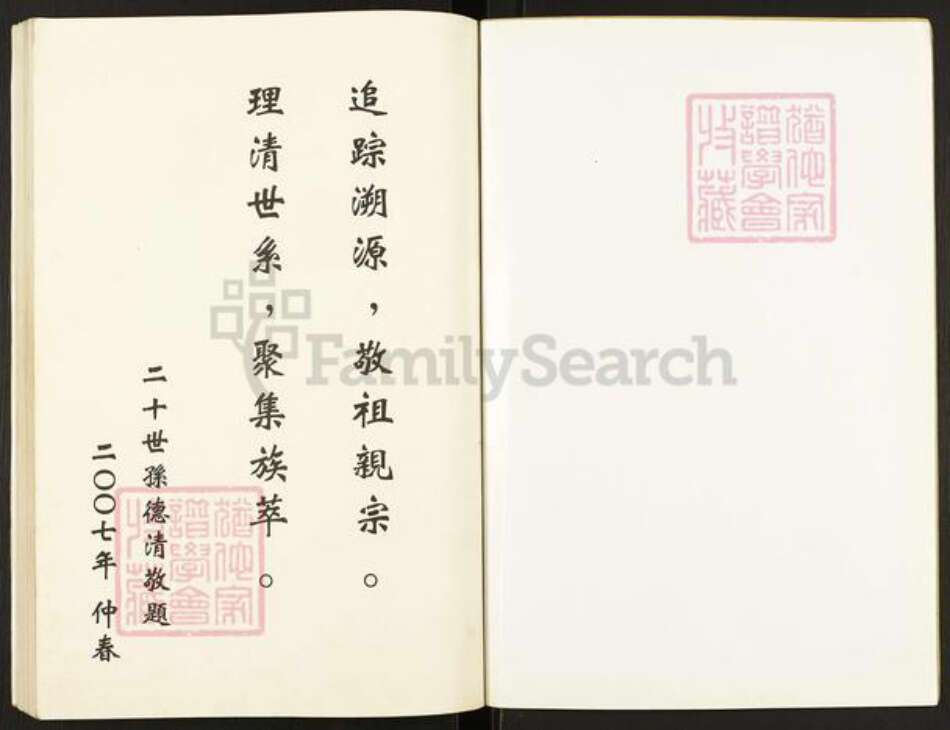 猶他家
譜學會
收藏
追踪溯源，敬祖親宗。
理清世系，聚集族萃。
二十世孫德清敬題
二〇〇七年 仲春
猶他家
譜學會
收藏
FamilySearch